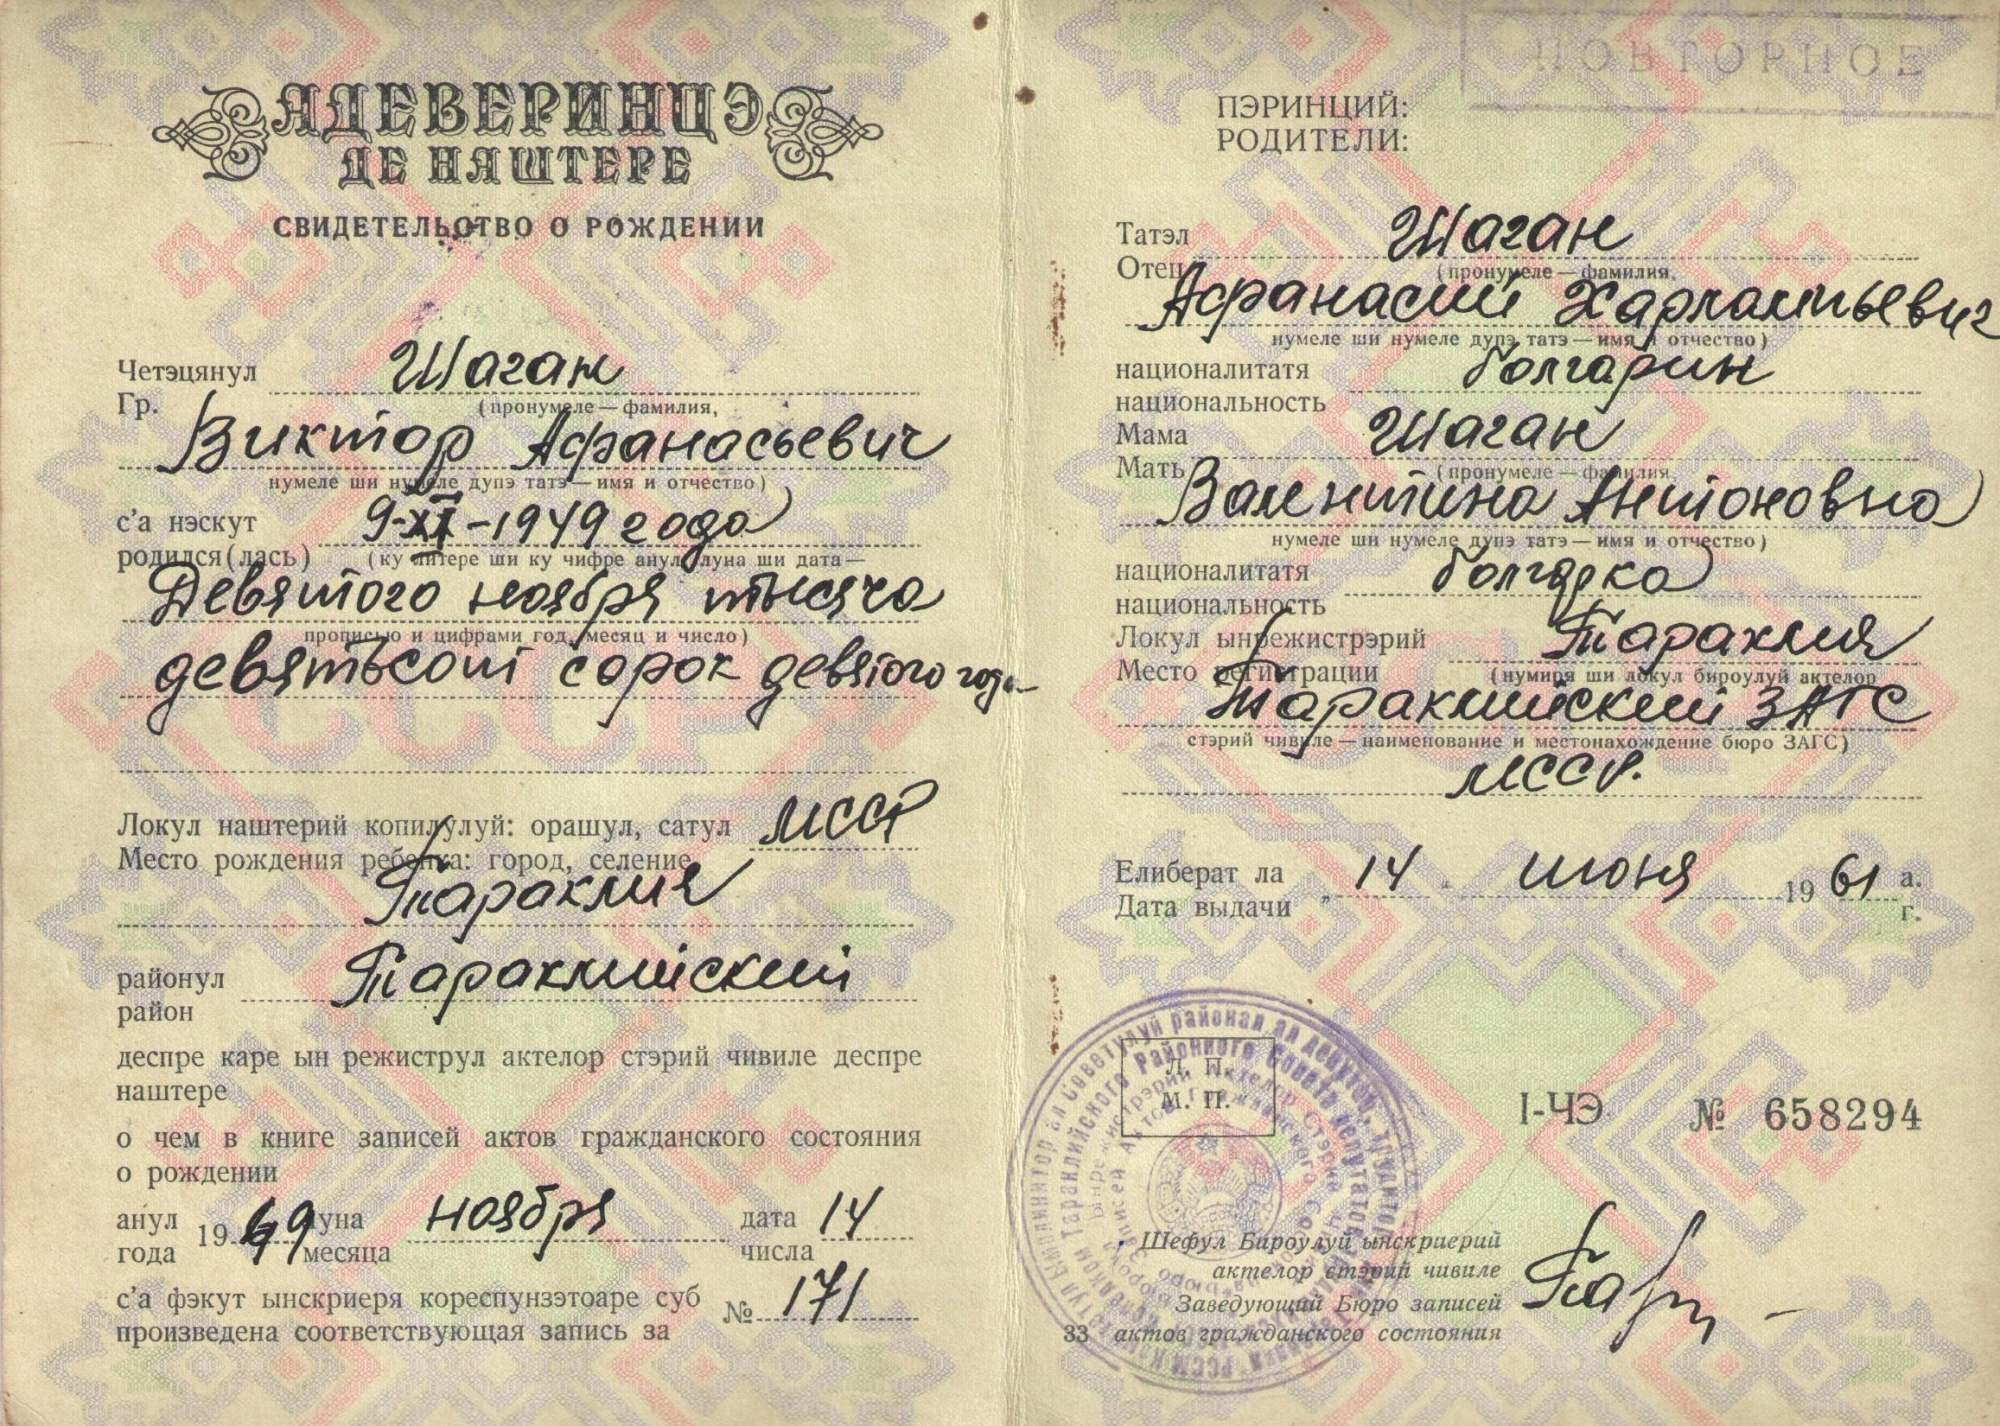 АДЕВЕРИНЦЭ
ДЕ НАШТЕРЕ
СВИДЕТЕЛЬСТВО О РОЖДЕНИИ
Четэцянул Шаган
Гр. (пронумеле — фамилия,
Виктор Афанасьевич
нумеле ши нумеле дупэ татэ — имя и отчество)
с'а нэскут 9-XI-1949 года
родился(лась) (ку литере ши ку чифре анул, луна ши дата —
Девятого ноября тысяча
прописью и цифрами год, месяц и число)
девятьсот сорок девятого года
Локул наштерий копилулуй: орашул, сатул МССР
Место рождения ребенка: город, селение
Тараклия
районул Тараклийский
район
деспре каре ын режиструл актелор стэрий чивиле деспре
наштере
о чем в книге записей актов гражданского состояния
о рождении
анул 1949 луна ноября дата 14
года месяца числа
с'а фэкут ынскриеря кореспунзэтоаре суб № 171
произведена соответствующая запись за
ПОВТОРНОЕ
ПЭРИНЦИЙ:
РОДИТЕЛИ:
Татэл Шаган
Отец (пронумеле — фамилия,
Афанасий Харлампьевич
нумеле ши нумеле дупэ татэ — имя и отчество)
националитатя болгарин
национальность
Мама Шаган
Мать (пронумеле — фамилия,
Валентина Антоновна
нумеле ши нумеле дупэ татэ — имя и отчество)
националитатя болгарка
национальность
Локул ынрежистрэрий Тараклия
Место регистрации (нумиря ши локул бироулуй актелор
Тараклийский ЗАГС
стэрий чивиле — наименование и местонахождение бюро ЗАГС)
МССР.
Елиберат ла „14" июня 1961 а.
Дата выдачи г.
Л. П.
М. П.
I-ЧЭ № 658294
Шефул Бироулуй ынскриерий
актелор стэрий чивиле
Заведующий Бюро записей
33 актов гражданского состояния